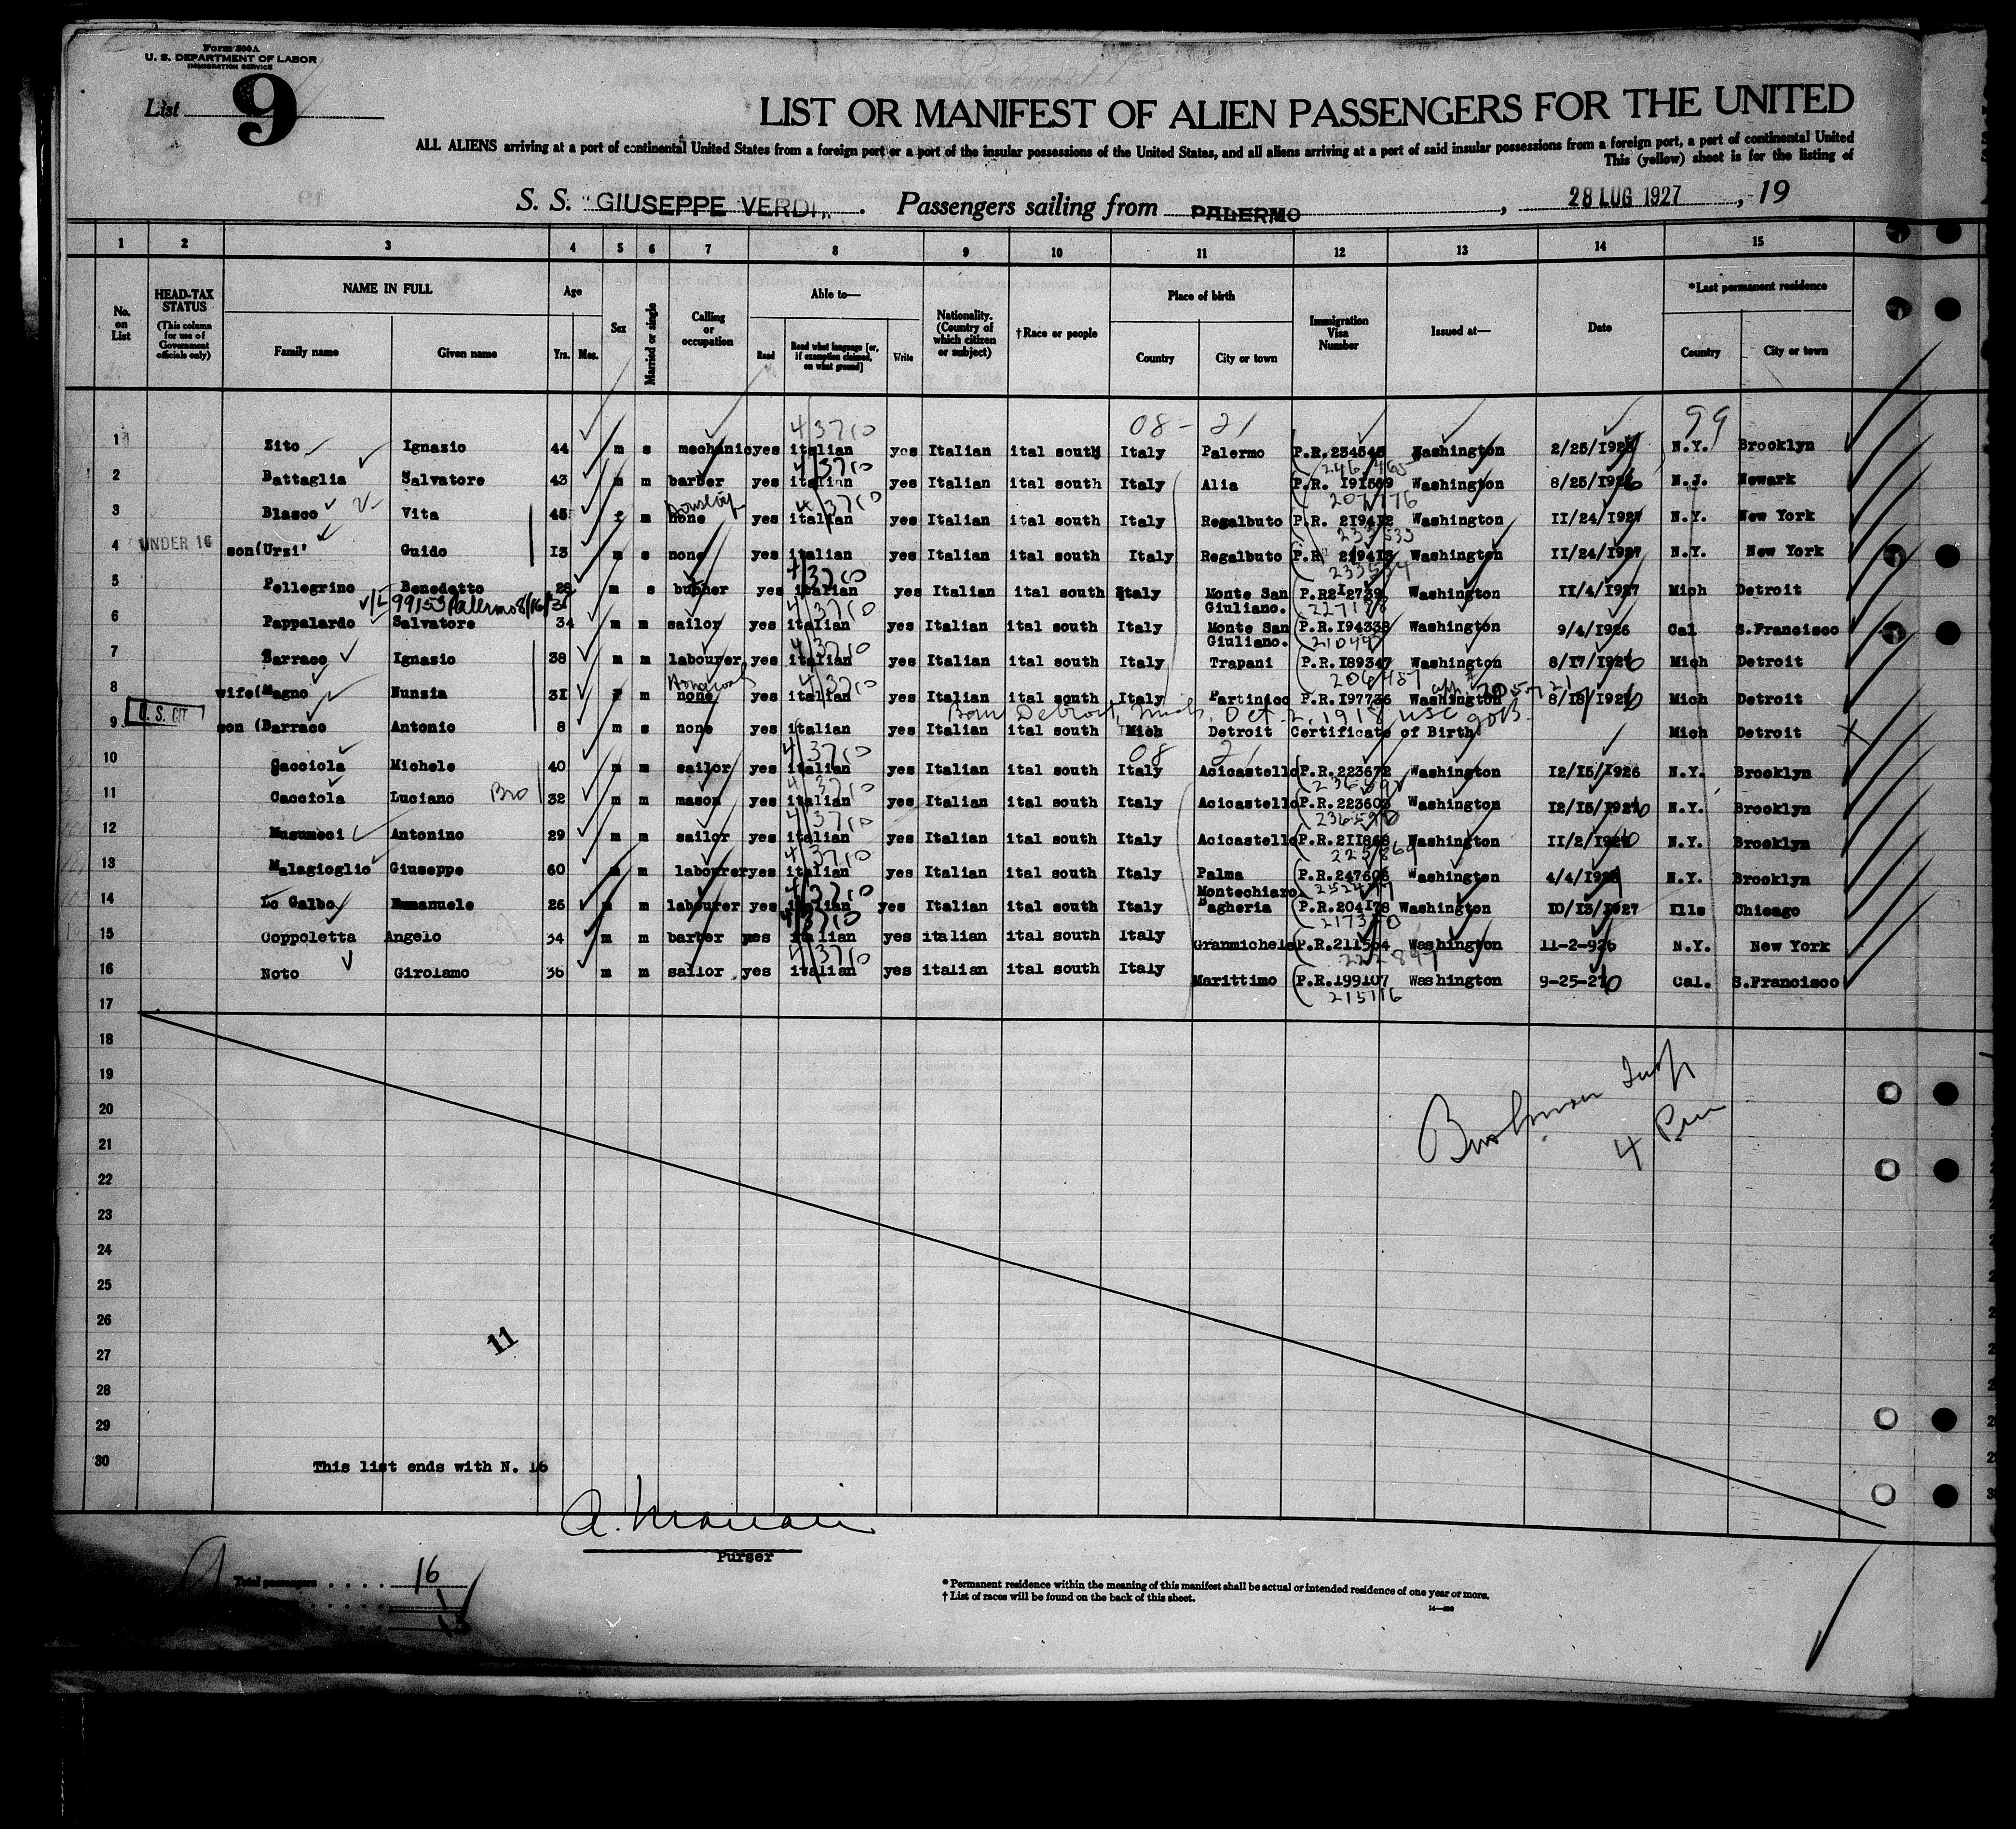 Form 500A
U. S. DEPARTMENT OF LABOR
IMMIGRATION SERVICE
List 9
LIST OR MANIFEST OF ALIEN PASSENGERS FOR THE UNITED
ALL ALIENS arriving at a port of continental United States from a foreign port or a port of the insular possessions of the United States, and all aliens arriving at a port of said insular possessions from a foreign port, a port of continental United
This (yellow) sheet is for the listing of
S. S. "GIUSEPPE VERDI". Passengers sailing from PALERMO, 28 LUG 1927, 19
1 2 3 4 5 6 7 8 9 10 11 12 13 14 15
No. on List
HEAD-TAX STATUS (This column for use of Government officials only)
NAME IN FULL Family name Given name
Age Yrs. Mos.
Sex
Married or single
Calling or occupation
Able to— Read Read what language [or, if exemption claimed, on what ground] Write
Nationality. (Country of which citizen or subject)
†Race or people
Place of birth Country City or town
Immigration Visa Number
Issued at—
Date
*Last permanent residence Country City or town
4/3710 08- 21 99
1 Zito Ignazio 44 m s mechanic yes italian yes Italian ital south Italy Palermo P.R.234545 Washington N.Y. Brooklyn
2 Battaglia Salvatore 43 m m barber yes italian yes Italian ital south Italy Alia P.R. Washington N.J. Newark
3 Blasco Vita 45 f m none yes italian yes Italian ital south Italy Regalbuto P.R. 219412 Washington 11/24/1927 N.Y. New York
4 UNDER 16 son(Urzi' Guido 13 m s none yes italian yes Italian ital south Italy Regalbuto P.R. 219413 Washington 11/24/1927 N.Y. New York
5 Pellegrino Benedetto 28 m s yes italian yes Italian ital south Italy Monte San Giuliano. Washington 11/4/1927 Mich Detroit
99153 Palermo 8/16/
6 Pappalardo Salvatore 34 m m sailor yes italian yes Italian ital south Italy Monte San Giuliano. P.R.194338 Washington 9/4/1926 Cal S.Francisco
7 Barraco Ignazio 38 m m labourer yes italian yes Italian ital south Italy Trapani P.R.189347 Washington 8/17/1926 Mich Detroit
8 wife(Magno Nunzia 31 f m none yes italian yes Italian ital south Italy Partinico P.R.197736 Washington Mich Detroit
Born Detroit, Mich, Oct. 2, 1918 USC
9 U. S. CIT son (Barraco Antonio 8 m s none yes italian yes Italian ital south Mich Detroit Certificate of Birth Mich Detroit
10 Cacciola Michele 40 m m sailor yes italian yes Italian ital south Italy Acicastello P.R.223672 Washington 12/15/1926 N.Y. Brooklyn
11 Cacciola Luciano Bro 32 m m mason yes italian yes Italian ital south Italy Acicastello P.R.223603 Washington N.Y. Brooklyn
12 Musumeci Antonino 29 m m sailor yes italian yes Italian ital south Italy Acicastello P.R.211868 Washington N.Y. Brooklyn
13 Malagioglio Giuseppe 60 m m labourer yes italian yes Italian ital south Italy Palma Montechiaro P.R.247606 Washington N.Y. Brooklyn
14 Lo Galbo Emanuele 26 m m labourer yes italian yes Italian ital south Italy Bagheria P.R.204178 Washington 10/13/1927 Ills Chicago
15 Coppoletta Angelo 34 m m barber yes italian yes italian ital south Italy Granmichele P.R.211564 Washington 11-2-926 N.Y. New York
16 Noto Girolamo 36 m m sailor yes italian yes italian ital south Italy Marittimo P.R.199107 Washington Cal. S.Francisco
215116
17
18
19
20
21
22
23
24
25
26
27
28
29
30
4
11
This list ends with N. 16
Purser
Total passengers . . . . 16
* Permanent residence within the meaning of this manifest shall be actual or intended residence of one year or more.
† List of races will be found on the back of this sheet.